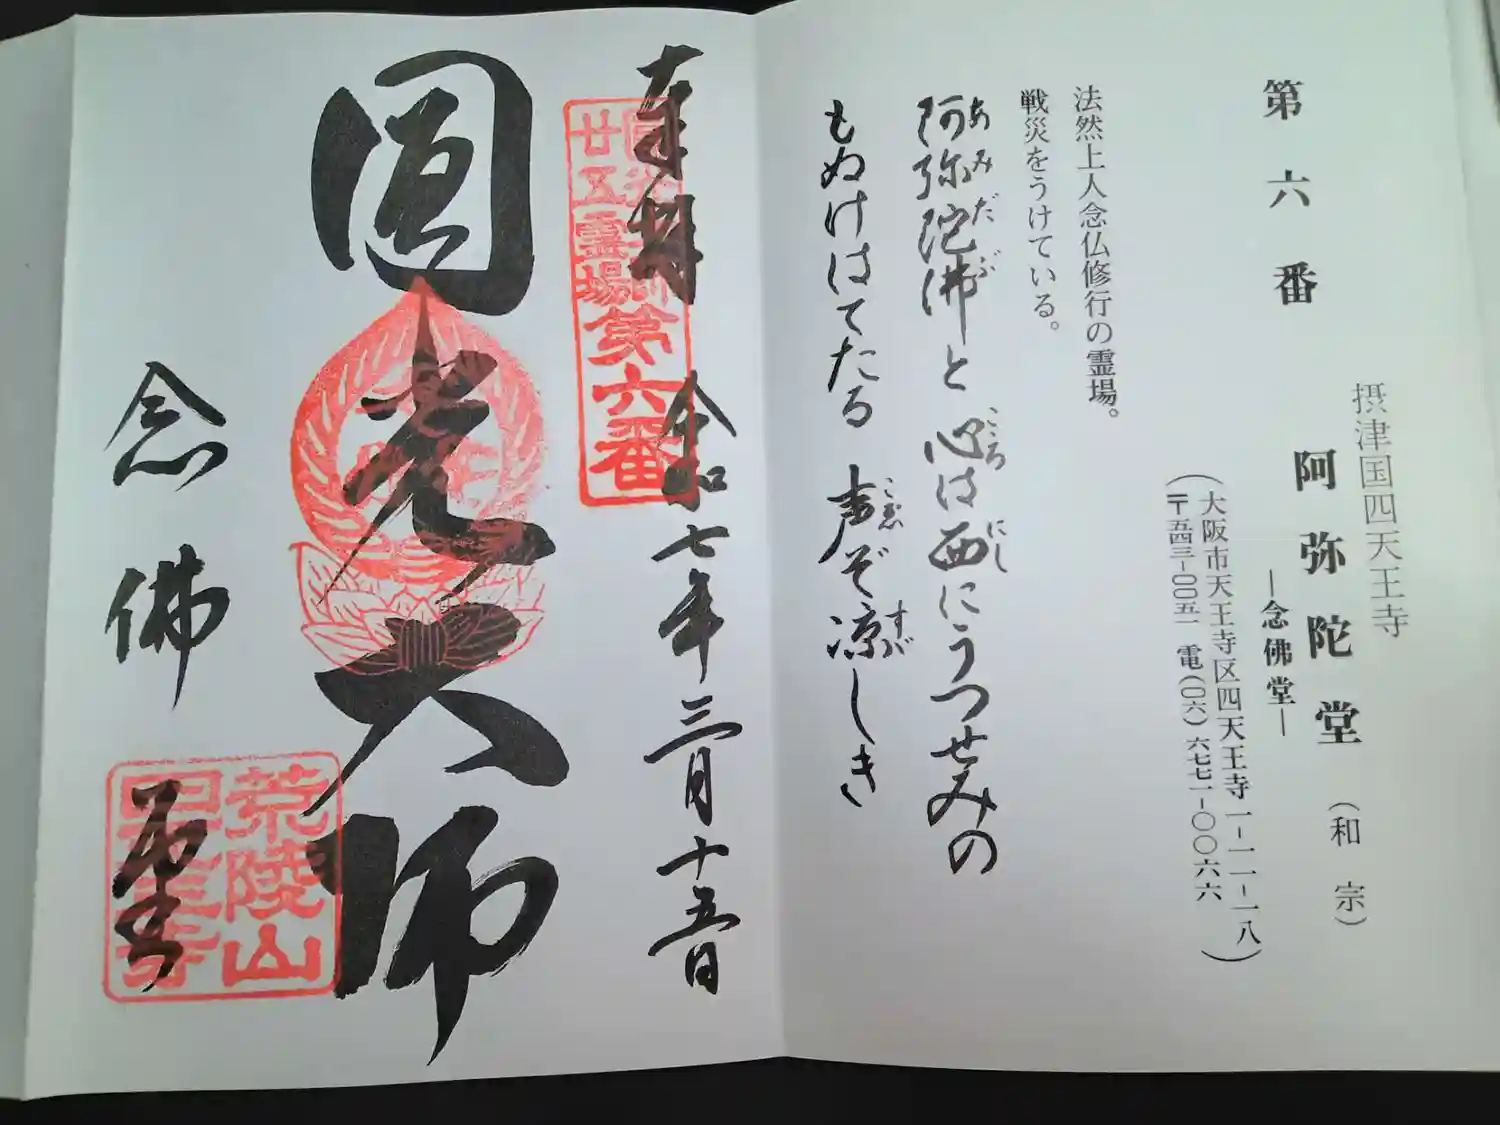 第六番
摂津国四天王寺
阿弥陀堂（和宗）
―念佛堂―
（大阪市天王寺区四天王寺一-一一-一八
〒五四三-〇〇五一 電(〇六)六七七一-〇〇六六）
法然上人念仏修行の霊場。
戦災をうけている。
阿弥陀佛と 心は西にうつせみの
あみだぶ こころ にし
もぬけはてたる 声ぞ凉しき
こゑ すゞ
奉拝 令和七年三月十五日
廿五霊場
第六番
圓光大師
念佛堂
荒陵山
四天王寺